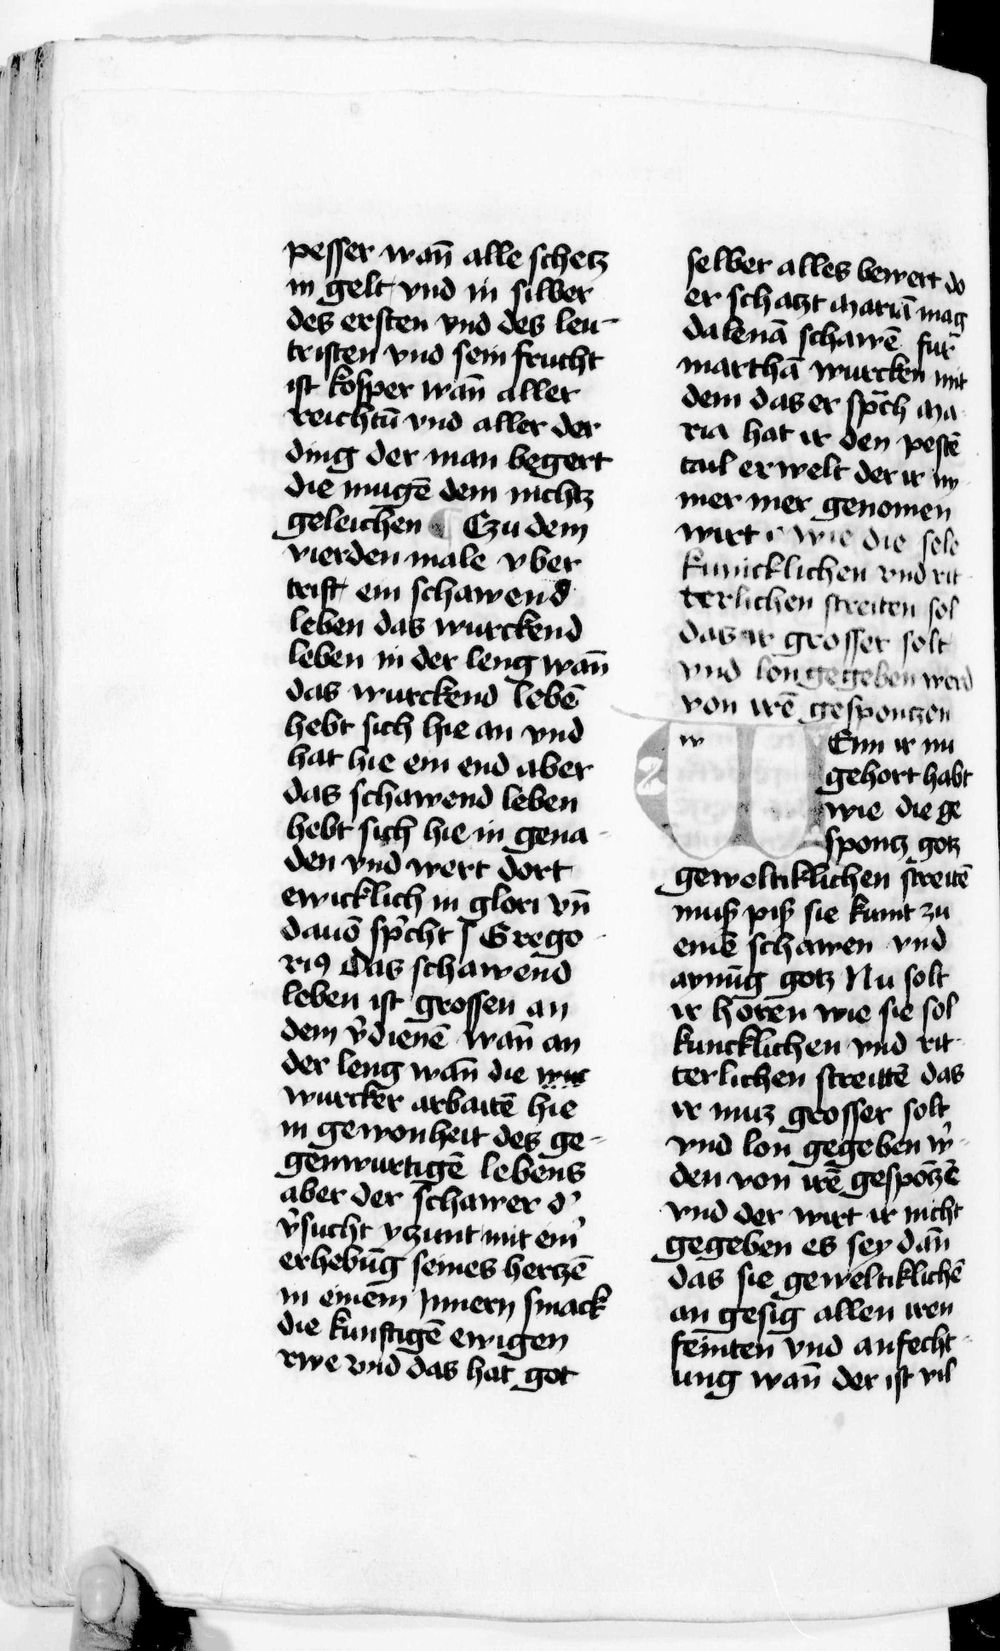 pesser wan̄ alle schetz
in gelt vnd in silber
des ersten vnd des leu-
tristen vnd sein frucht
ist kosper wan̄ aller
reichtū vnd aller der
ding der man begert
die mugē dem nichtz
geleichen ¶ Czu dem
vierden male vber
trift ein schawend
leben das wurckend
leben in der leng wan̄
das wurckend lebē
hebt sich hie an vnd
hat hie ein end aber
das schawend leben
hebt sich hie in gena-
den vnd wert dort
ewicklich in glori vn̄
dauō sp̄cht s Grego-
riꝯ Das schawend
leben ist grossen an
dem v̓dienē wan̄ an
der leng wan̄ die
wurcker arbaitē hie
in gewonheit des ge-
genwurtigē lebens
aber der schawer d̓
v̓sucht yzunt mit ein̓
erhebūg seines hertzē
in einem Innern smack
die kunftigē ewigen
rwe vnd das hat got
selber alles bewert do
er schatzt mariā mag
dalenā schawē fur
marthā wurcken mit
dem das er sp̄ch Ma
ria hat ir den pestē
tail erwelt der ir ny-
mer mer genomen
wirt wie die sele
kunicklichen vnd rit-
terlichen streiten sol
das ir grosser solt
vnd lon gegeben werd
von irē gesponczen
w Enn ir nu
gehort habt
wie die ge
spontz gotz
geweltiklichen streitē
muß piß sie kumt zu
einē schawen vnd
aynūg gotz Nu solt
ir horen wie sie sol
kuncklichen vnd rit-
terlichen streittē das
ir muz grosser solt
vnd lon gegeben w̓-
den von irē gespōzē
vnd der wirt ir nicht
gegeben es sey dan̄
das sie geweltiklichē
an gesig allen iren
feinten vnd anfecht-
ung wan̄ der ist vil